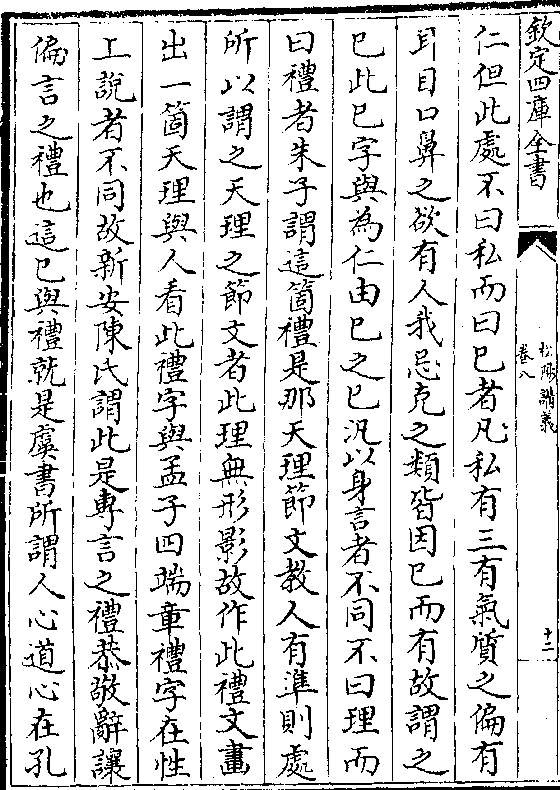 欽定四庫全書
松陽講義
卷八
十二
仁但此處不曰私而曰已者凡私有三有氣質之偏有
耳目口鼻之欲有人我忌克之類皆因已而有故謂之
已此已字與為仁由已之已汎以身言者不同不曰理而
曰禮者朱子謂這箇禮是那天理節文教人有準則處
所以謂之天理之節文者此理無形影故作此禮文畫
出一箇天理與人看此禮字與孟子四端章禮字在性
上說者不同故新安陳氏謂此是專言之禮恭敬辭讓
偏言之禮也這已與禮就是虞書所謂人心道心在孔